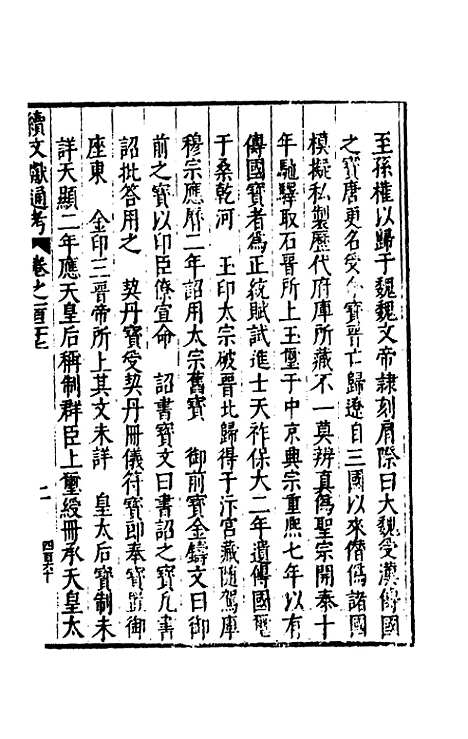 至孫權以歸于魏魏文帝隷刻肩際曰大魏受漢傳國
之寶唐更名受命寶晉亡歸遼自三國以來僭僞諸國
模擬私製歷代府庫所藏不一莫辨真僞聖宗開泰十
年馳驛取石晉所上玉璽于中京興宗重熈七年以有
傳國寶者爲正統賦試進士天祚保大二年遺傳國璽
于桑乾河　玉印太宗破晉北歸得于汴宫藏随駕庫
穆宗應曆二年詔用太宗舊寶　御前寶金鑄文曰御
前之寶以印臣僚宣命　詔書寶文曰書詔之寶凡書
詔批答用之　契丹寶受契丹冊儀符寶郎奉寶置御
座東　金印三晉帝所上其文未詳　皇太后寶制未
詳天顯二年應天皇后稱制群臣上璽綬冊承天皇太
續文獻通考　卷之一百
四百六十